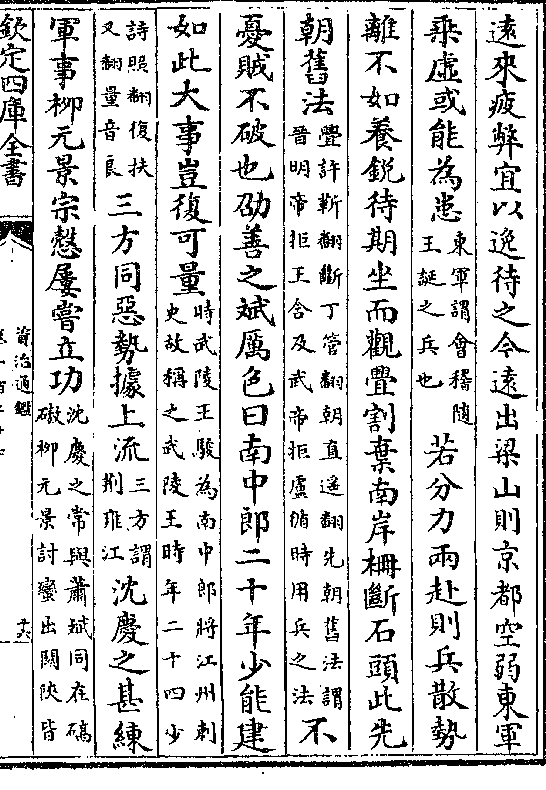 遠來疲弊宜以逸待之今遠出梁山則京都空弱東軍
乘虛或能為患東軍謂㑹稽隨王誕之兵也若分力兩赴則兵散勢
離不如養銳待期坐而觀釁割棄南岸柵斷石頭此先
朝舊法釁許靳翻斷丁管翻朝直遥翻先朝舊法謂晉明帝拒王含及武帝拒盧循時用兵之法不
憂賊不破也劭善之斌厲色曰南中郎二十年少能建
如此大事豈復可量時武陵王駿為南中郎將江州刺史故稱之武陵王時年二十四少
詩照翻復扶又翻量音良三方同惡勢據上流三方謂荆雍江沈慶之甚練
軍事柳元景宗慤屢嘗立功沈慶之常與蕭斌同在碻磝柳元景討蠻出關陜皆
欽定四庫全書
資治通鑑